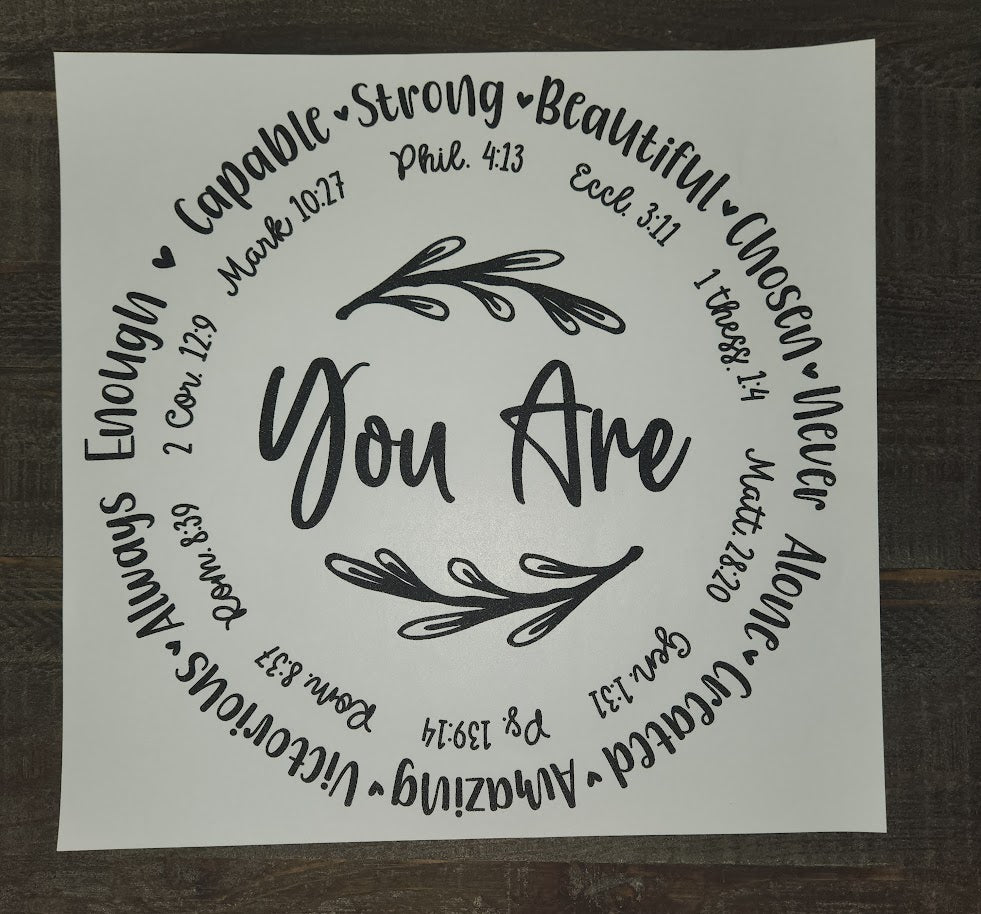 You Are
Strong ♥ Beautiful ♥ Chosen ♥ Never Alone ♥ Created ♥ Amazing ♥ Victorious ♥ Always Enough ♥ Capable ♥
Phil. 4:13
Eccl. 3:11
1 thess. 1:4
Matt. 28:20
Gen. 1:31
Ps. 139:14
Rom. 8:37
Rom. 8:39
2 Cor. 12:9
Mark 10:27